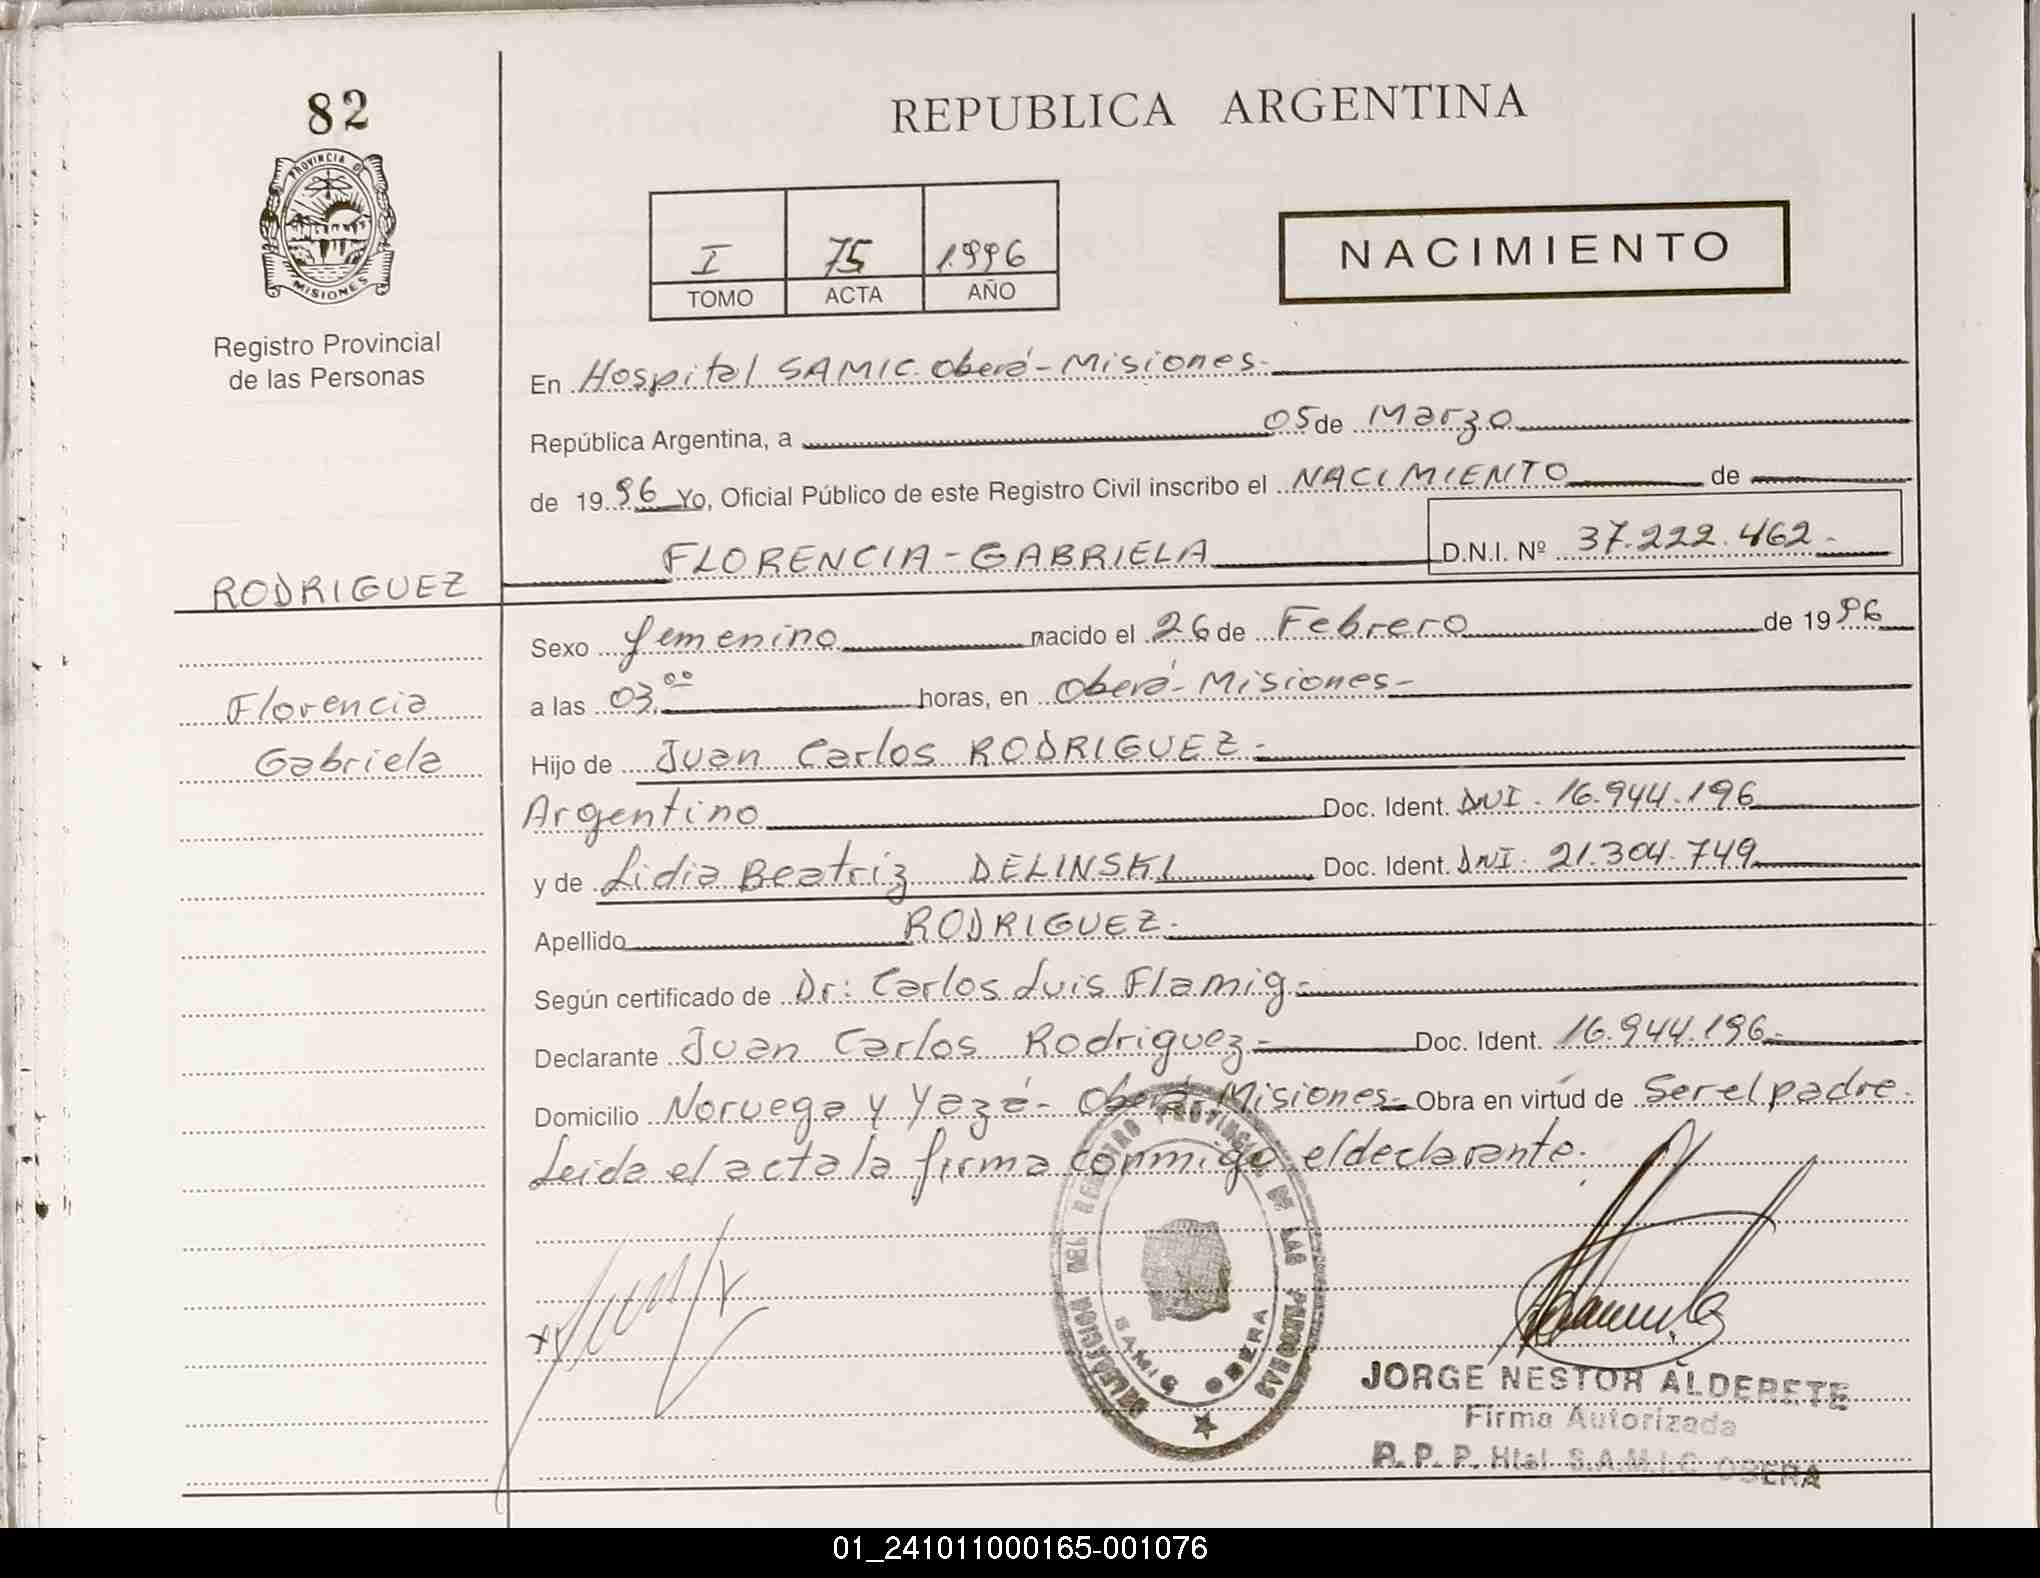 82
PROVINCIA DE
MISIONES
Registro Provincial
de las Personas
REPUBLICA ARGENTINA
I 75 1.996
TOMO ACTA AÑO
NACIMIENTO
En Hospital SAMIC. Oberá - Misiones.-
República Argentina, a 05 de Marzo
de 19 96 Yo, Oficial Público de este Registro Civil inscribo el NACIMIENTO de
FLORENCIA - GABRIELA D.N.I. Nº 37.222.462.-
RODRIGUEZ
Florencia
Gabriela
Sexo femenino nacido el 26 de Febrero de 19 96
a las 03.00 horas, en Oberá - Misiones -
Hijo de Juan Carlos RODRIGUEZ.-
Argentino Doc. Ident. DNI. 16.944.196
y de Lidia Beatriz DELINSKI Doc. Ident. DNI. 21.304.749
Apellido RODRIGUEZ.-
Según certificado de Dr: Carlos Luis Flamig.-
Declarante Juan Carlos Rodriguez.- Doc. Ident. 16.944.196.-
Domicilio Noruega y Yazá - Oberá - Misiones - Obra en virtud de Ser el padre.
Leida el acta la firma conmigo el declarante.
DELEGACION DEL REGISTRO PROVINCIAL DE LAS PERSONAS
SAMIC OBERA
JORGE NESTOR ALDERETE
Firma Autorizada
R. P. P. Htal S.A.M.I.C OBERA
01_241011000165-001076